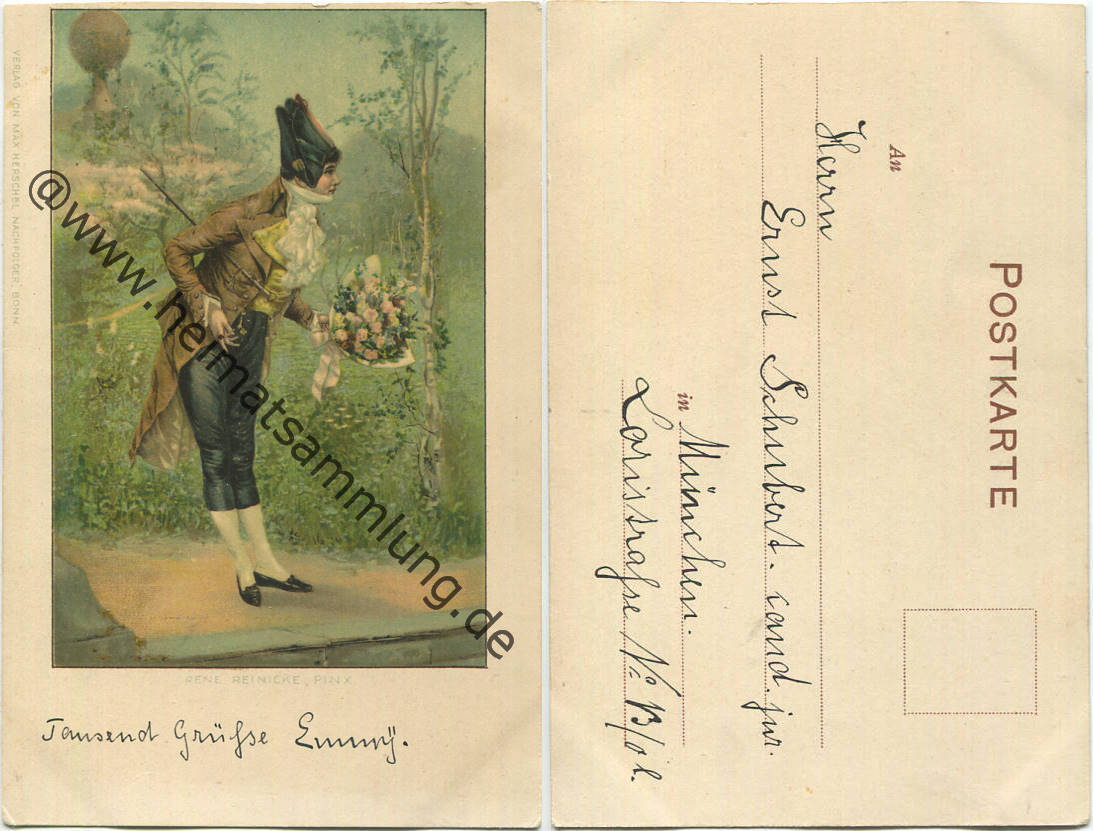 VERLAG VON MAX HERSCHEL NACHFOLGER, BONN
@www.heimatsammlung.de
RENE REINICKE, PINX
Tausend Grüſse Emmy.
POSTKARTE
An
Herrn
Ernst Schubert. cand. jur.
in München.
Loristraſse No 13/0 l.